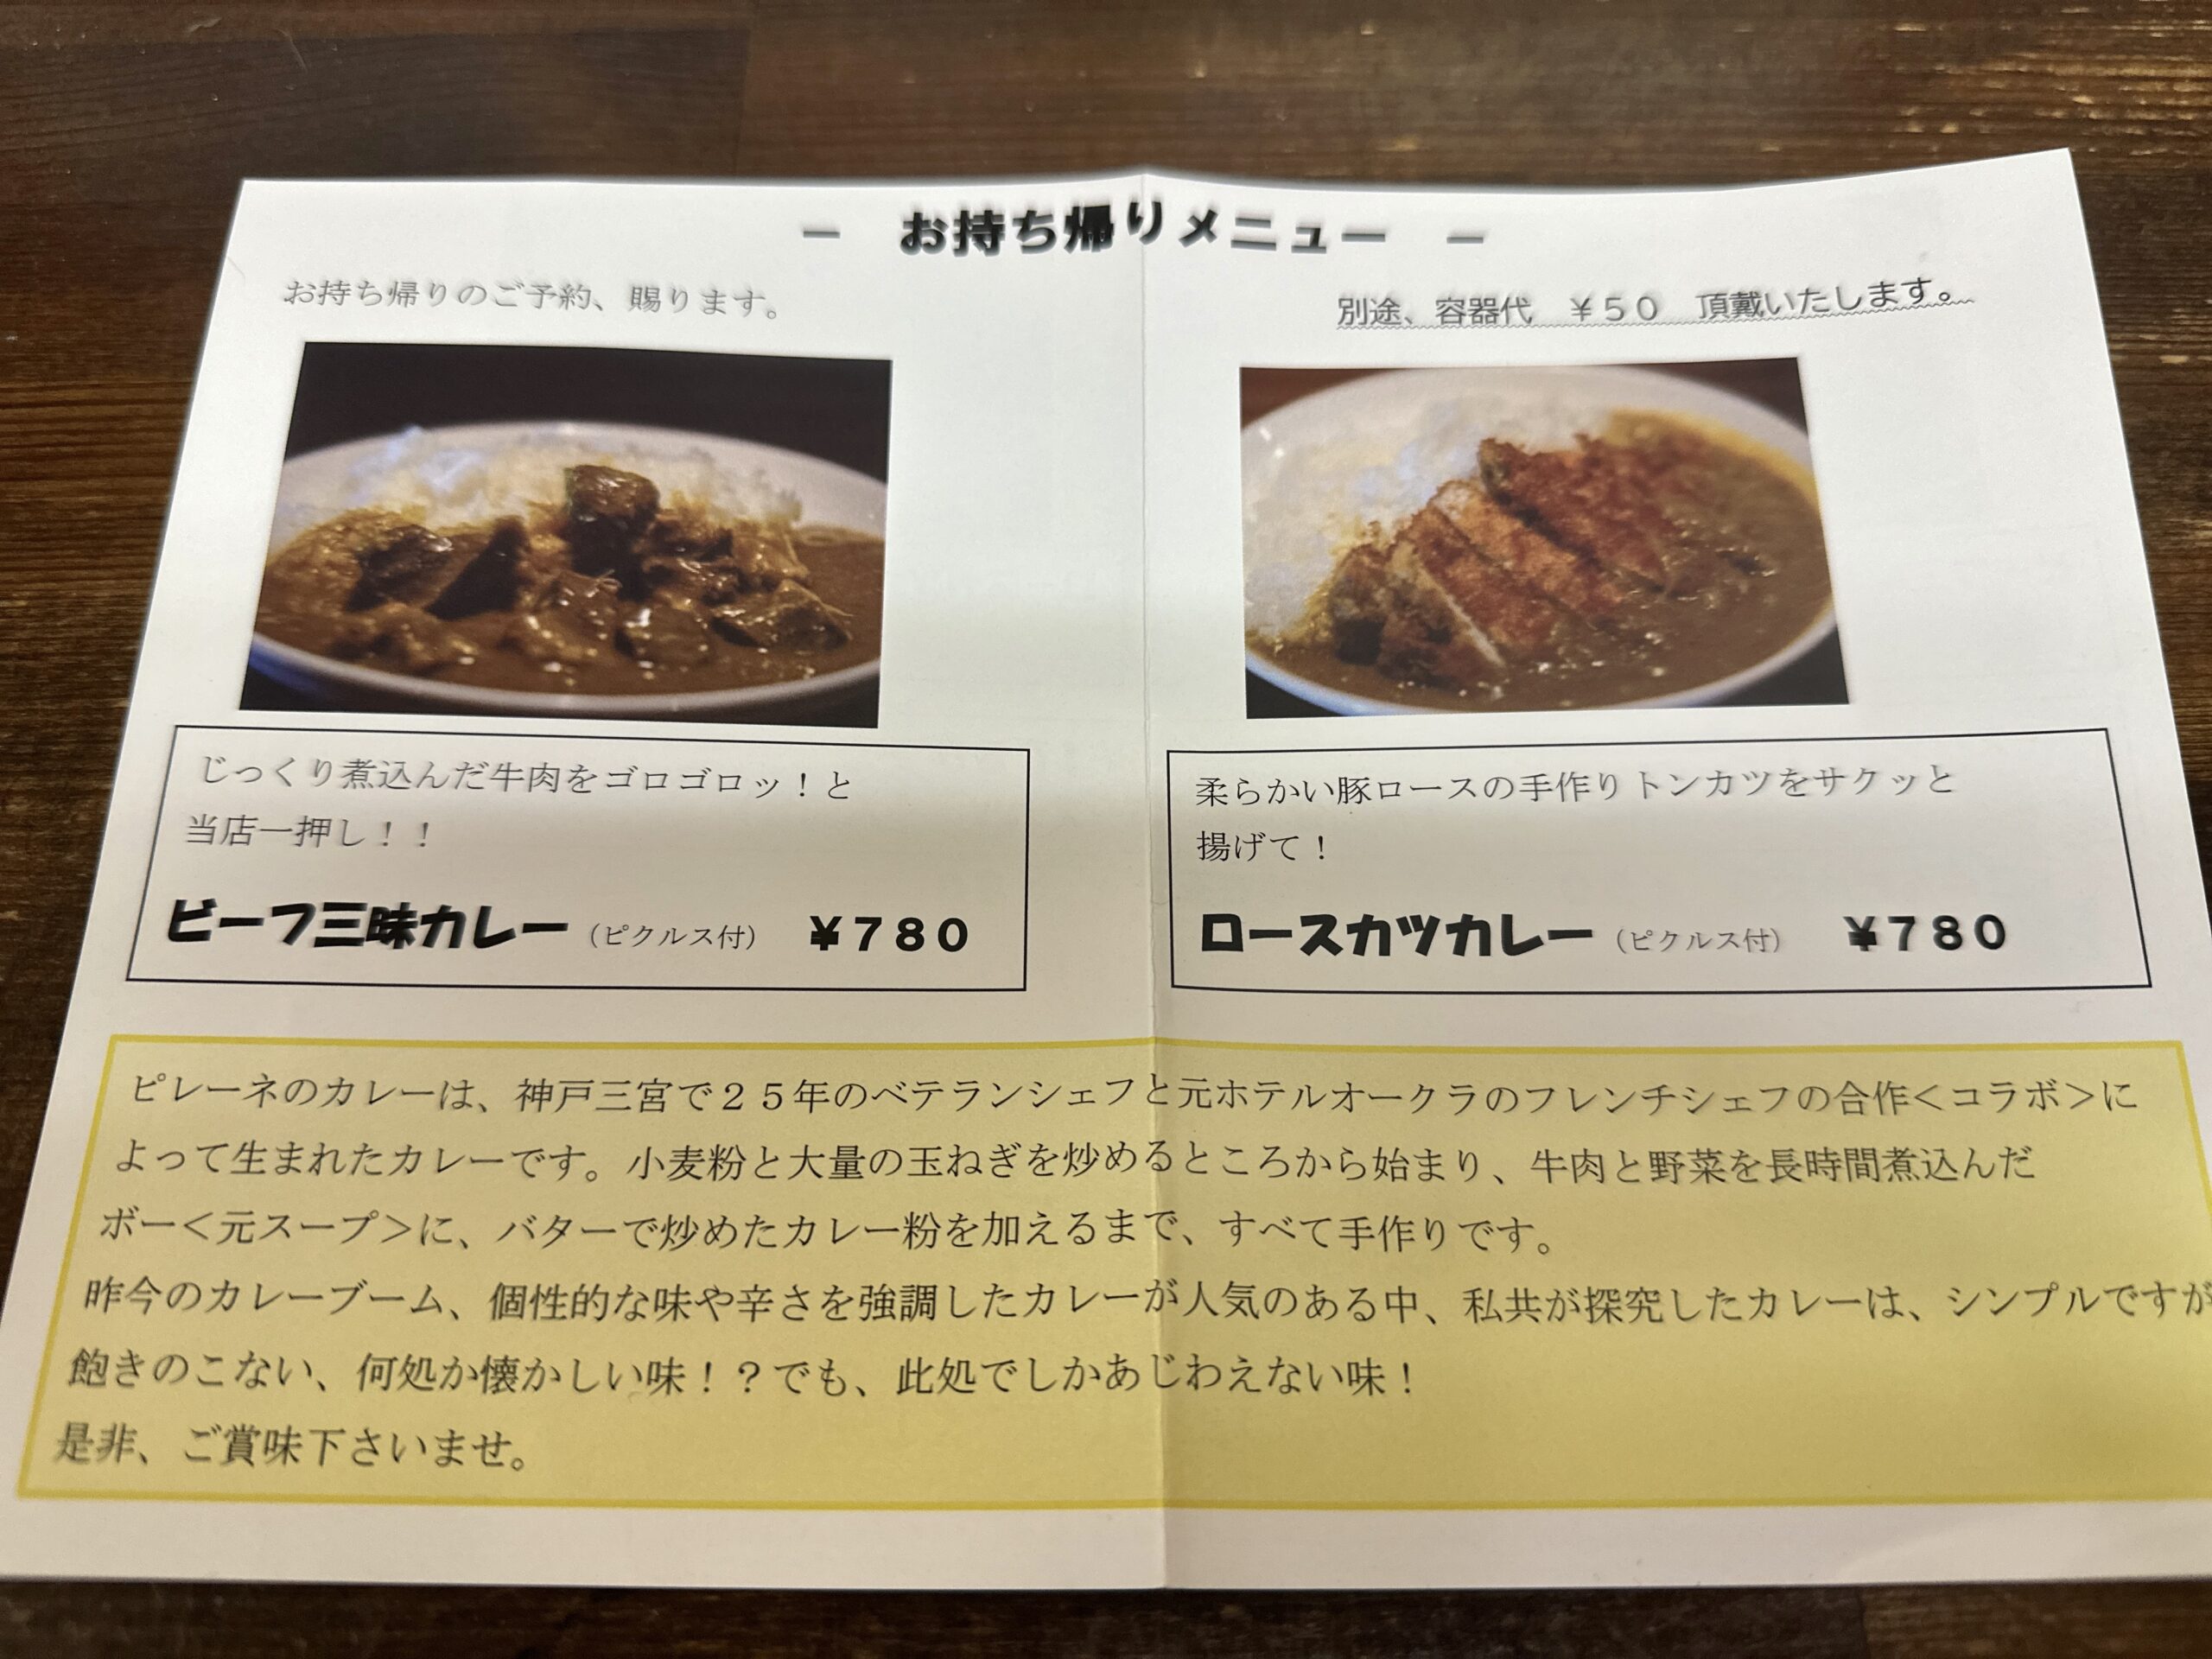 －　お持ち帰りメニュー　－
お持ち帰りのご予約、賜ります。
別途、容器代　￥５０　頂戴いたします。
じっくり煮込んだ牛肉をゴロゴロッ！と
当店一押し！！
ビーフ三昧カレー（ピクルス付）　￥７８０
柔らかい豚ロースの手作りトンカツをサクッと
揚げて！
ロースカツカレー（ピクルス付）　￥７８０
ピレーネのカレーは、神戸三宮で２５年のベテランシェフと元ホテルオークラのフレンチシェフの合作＜コラボ＞に
よって生まれたカレーです。小麦粉と大量の玉ねぎを炒めるところから始まり、牛肉と野菜を長時間煮込んだ
ボー＜元スープ＞に、バターで炒めたカレー粉を加えるまで、すべて手作りです。
昨今のカレーブーム、個性的な味や辛さを強調したカレーが人気のある中、私共が探究したカレーは、シンプルですが
飽きのこない、何処か懐かしい味！？でも、此処でしかあじわえない味！
是非、ご賞味下さいませ。